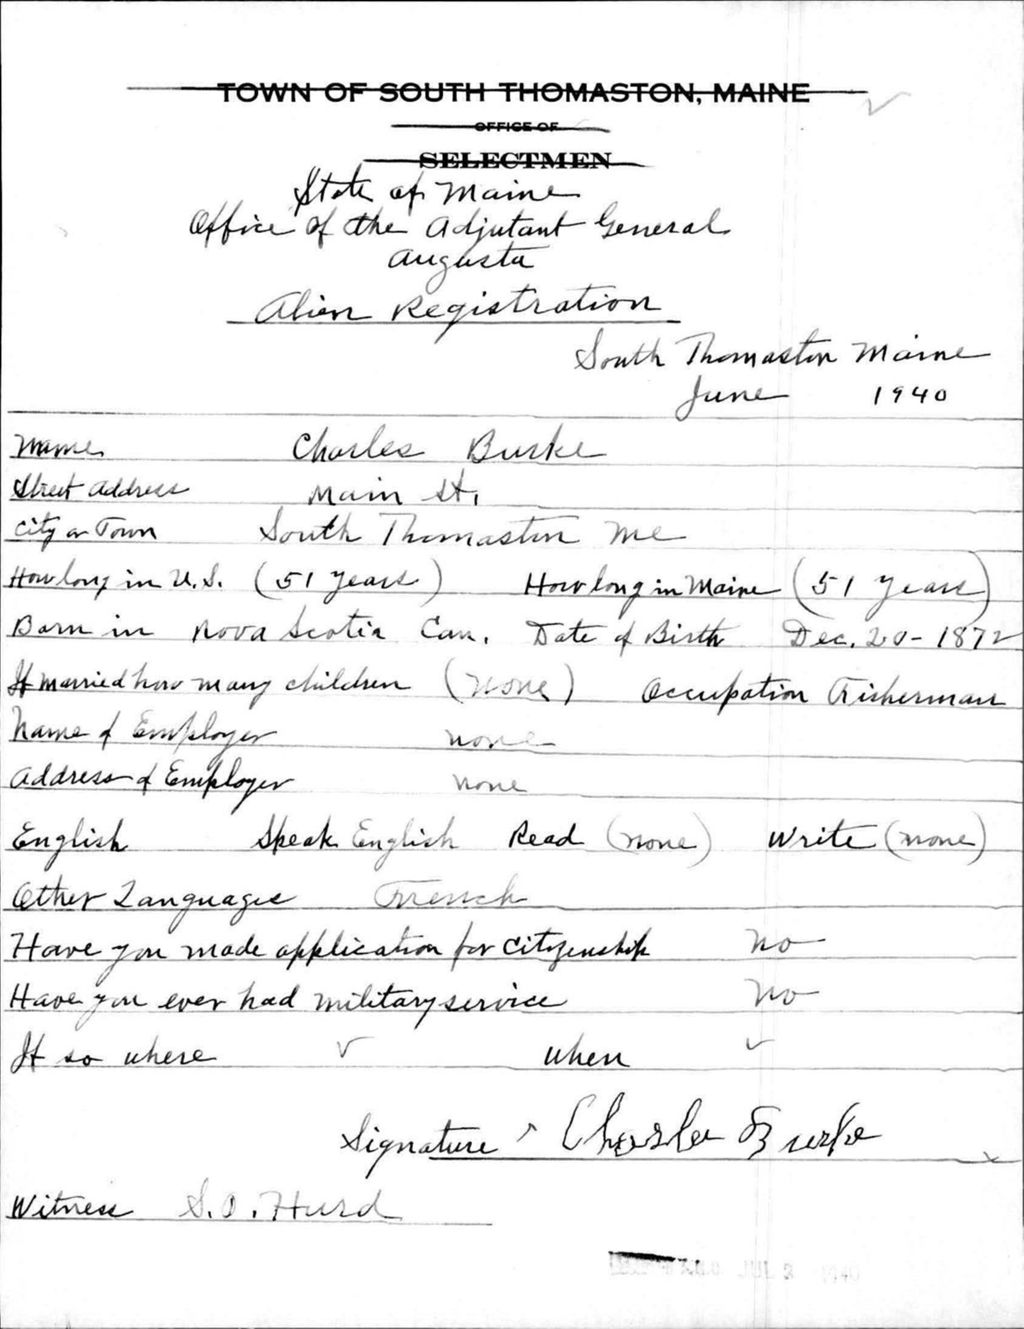 TOWN OF SOUTH THOMASTON, MAINE
OFFICE OF
SELECTMEN
State of Maine
Office of the Adjutant General
Augusta
Alien Registration
South Thomaston Maine
June 1940
Name Charles Burke
Street Address Main St.
City or Town South Thomaston Me
How long in U.S. (51 years) How long in Maine (51 years)
Born in Nova Scotia Can. Date of Birth Dec. 20-1872
If married how many children (none) Occupation Fisherman
Name of Employer none
Address of Employer none
English Speak English Read (none) Write (none)
Other Languages French
Have you made application for citizenship No
Have you ever had military service No
If so where ✓ when ✓
Signature Charles Burke
Witness S.O. Hurd
A.G.O. JUL 3 1940